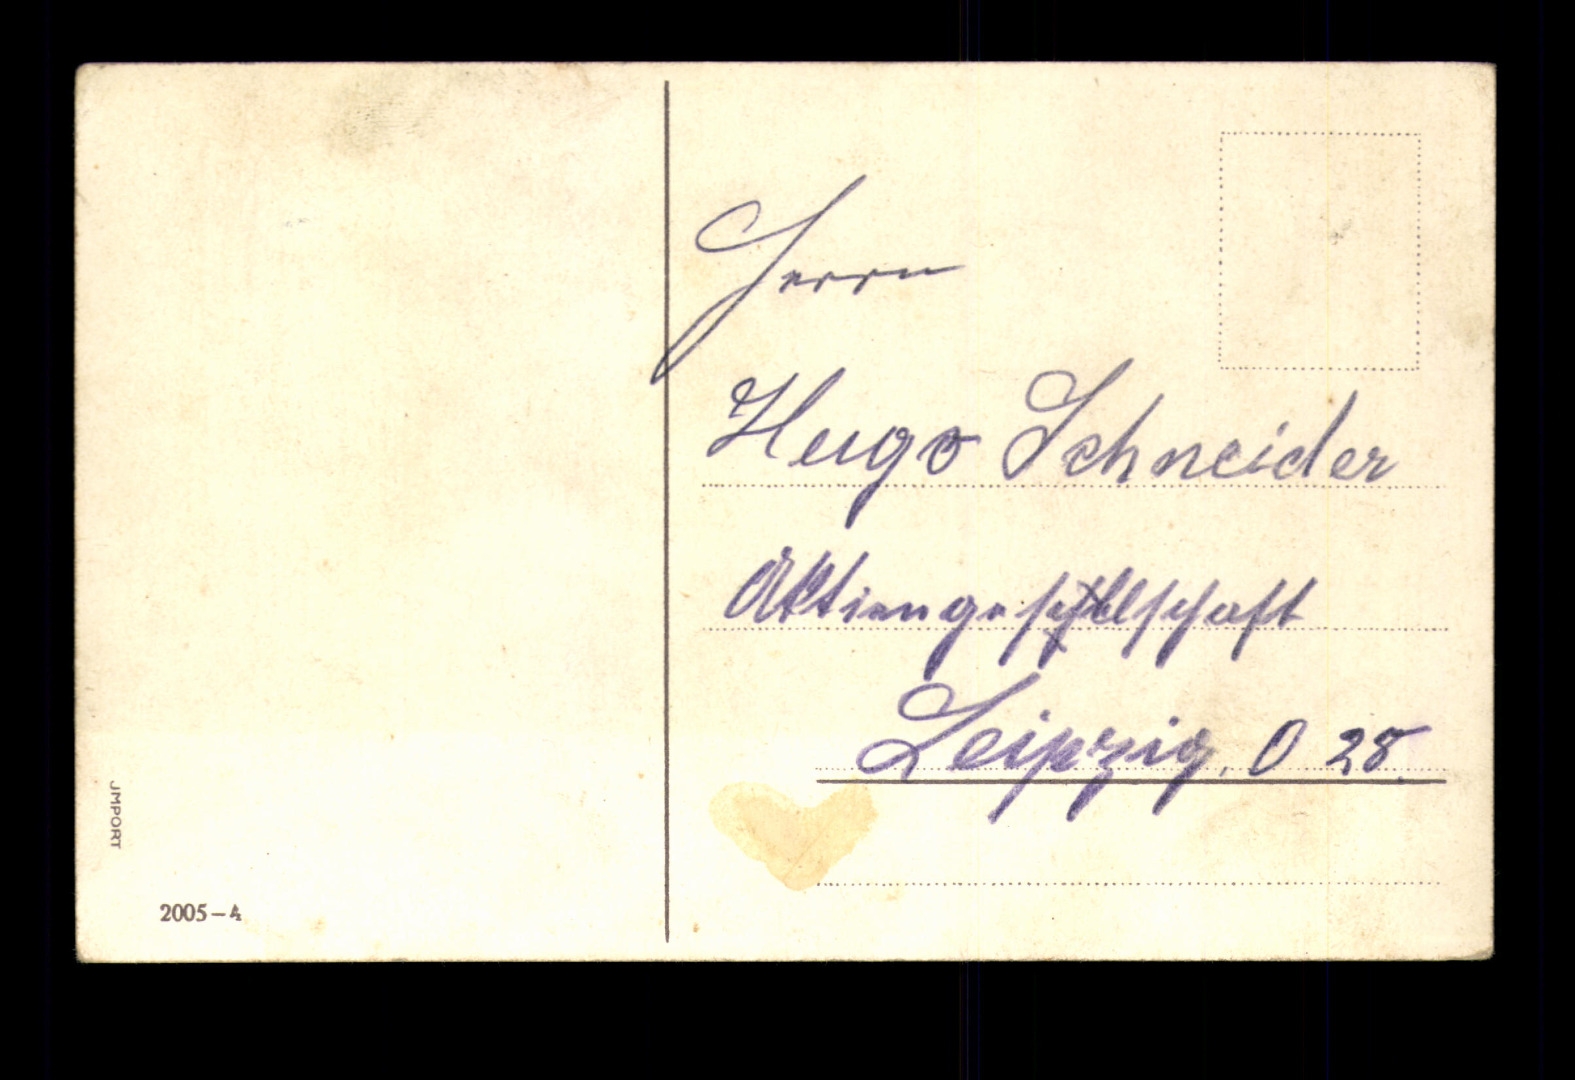 Herrn
Hugo Schneider
Aktiengesellschaft
Leipzig, O 28.
JMPORT
2005-4